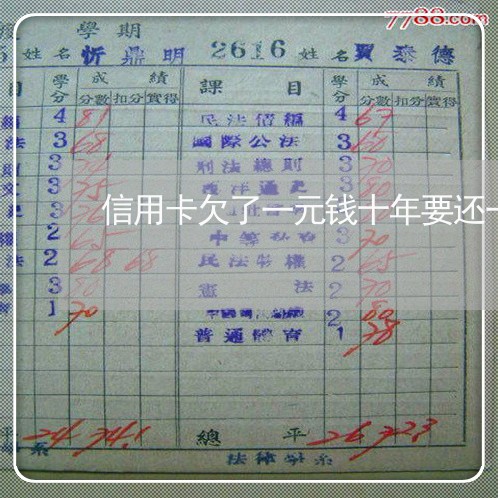 7788.com
學期
5 姓名 忻鼎明 2616 姓名 賈泰德
目 學分 成績 課目 學分 成績
分數 扣分 實得 分數 扣分 實得
4 81 民法債編 4 67
法 3 68 國際公法 3 60
3 刑法總則 3 70
3 75 西洋通史 3 80
信用卡欠了一元钱十年要还一
2 65 3 70
法 2 68 68 民法物權 2 65
3 80 憲法 2 70
1 70 2 80
普通體育 1 78
平 24 74.1 總平 26 72.3
系 法律學系